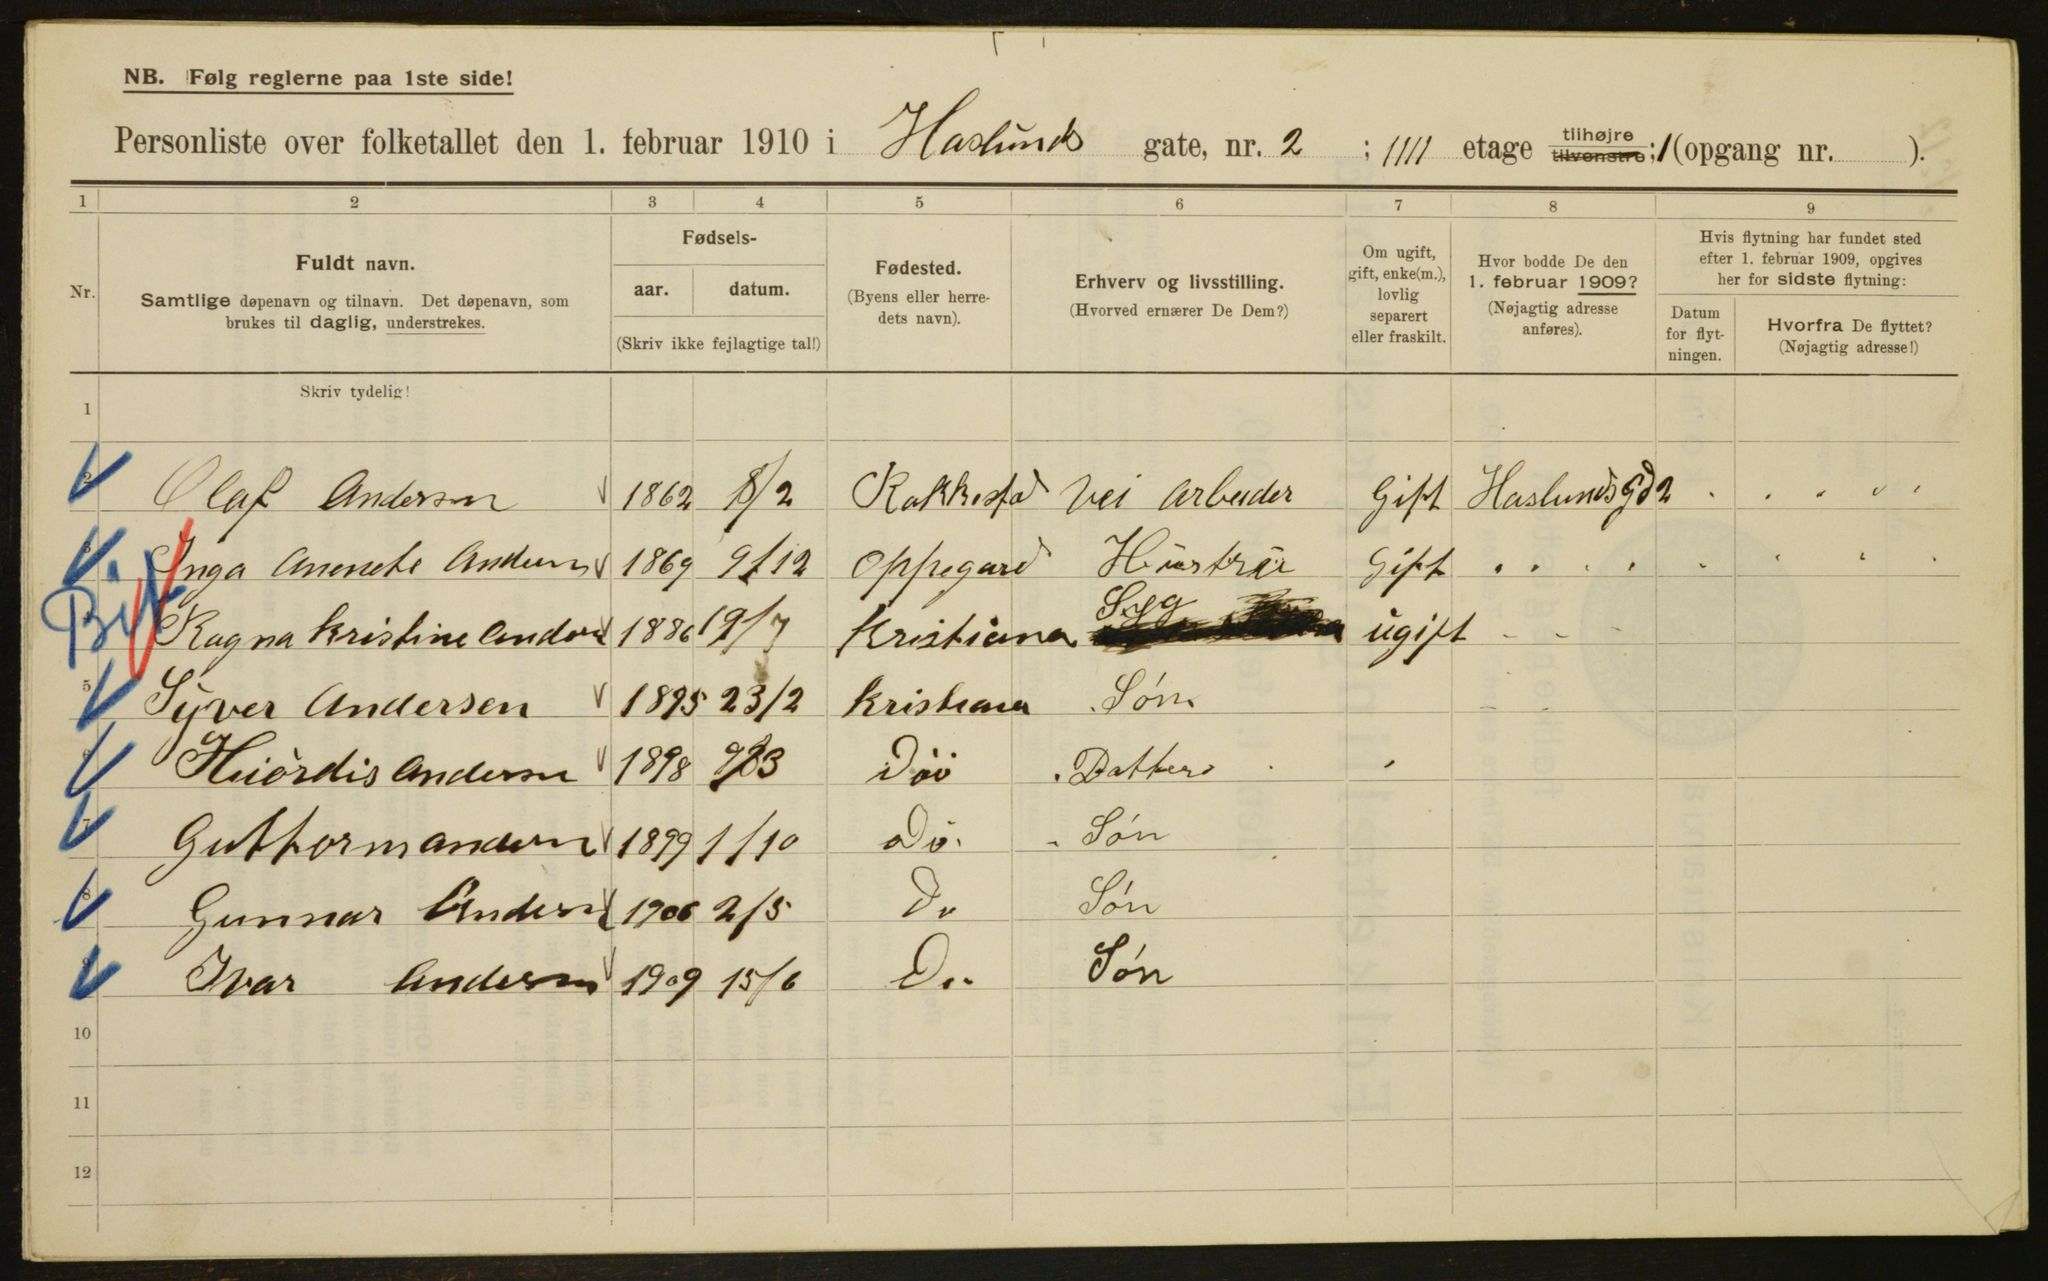 NB. Følg reglerne paa 1ste side!
Personliste over folketallet den 1. februar 1910 i Haslunds gate, nr. 2 ; 1111 etage tilhøjre tilvenstre; 1 (opgang nr. ).
1 2 3 4 5 6 7 8 9
Nr.
Fuldt navn.
Samtlige døpenavn og tilnavn. Det døpenavn, som
brukes til daglig, understrekes.
Fødsels-
aar. datum.
(Skriv ikke fejlagtige tal!)
Fødested.
(Byens eller herre-
dets navn).
Erhverv og livsstilling.
(Hvorved ernærer De Dem?)
Om ugift,
gift, enke(m.),
lovlig
separert
eller fraskilt.
Hvor bodde De den
1. februar 1909?
(Nøjagtig adresse
anføres).
Hvis flytning har fundet sted
efter 1. februar 1909, opgives
her for sidste flytning:
Datum
for flyt-
ningen.
Hvorfra De flyttet?
(Nøjagtig adresse!)
Skriv tydelig!
1
2 Olaf Andersen 1862 8/2 Rakkestad Vei Arbeider Gift Haslunds Gd 2
3 Inga Anenete Andersen 1869 9/12 Oppegard Hustru Gift
4 Ragna Kristine Andersen 1886 19/7 Kristiana Syg ugift
5 Syver Andersen 1895 23/2 Kristiana Søn
6 Hiördis Andersen 1898 Do Datter
7 Guttorm Andersen 1899 1/10 Do Søn
8 Gunnar Andersen 1906 2/5 Do Søn
9 Ivar Andersen 1909 15/6 Do Søn
10
11
12